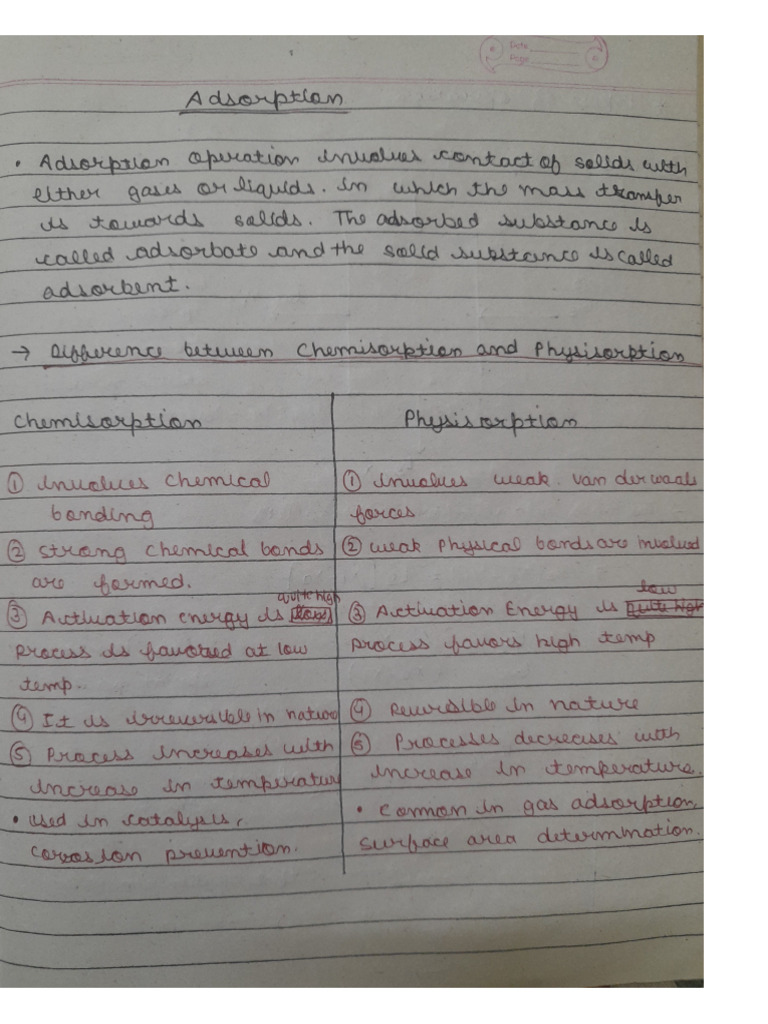 Date
Page
Adsorption
• Adsorption operation involves contact of solids with
either gases or liquids. In which the mass transfer
is towards solids. The adsorbed substance is
called adsorbate and the solid substance is called
adsorbent.
→ Difference between Chemisorption and Physisorption
Chemisorption
① involves chemical
bonding
② strong chemical bonds
are formed.
quite high
③ Activation energy is
process is favored at low
temp.
④ It is irreversible in nature
⑤ Process increases with
increase in temperature
• used in catalysis,
corrosion prevention.
Physisorption
① involves weak van der waals
forces
② weak physical bonds are involved
low
③ Activation Energy is quite high
process favors high temp
④ Reversible in nature
⑤ Processes decreases with
increase in temperature.
• common in gas adsorption,
surface area determination.